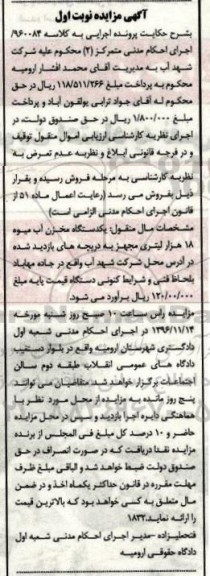 آگهی مزایده نوبت اول
بشرح حکایت پرونده اجرایی به کلاسه ۹۶۰۰۸۴/
اجرای احکام مدنی متمرکز (۲) محکوم علیه شرکت
شهد آب به مدیریت آقای محمد افشار ارومیه
محکوم به پرداخت مبلغ ۱۱۸/۵۱۱/۲۶۶ ریال در حق
محکوم له آقای جواد ترابی یولقون آباد و پرداخت
مبلغ ۱/۸۰۰/۰۰۰ ریال در حق صندوق دولت، در
اجرای نظریه کارشناسی ارزیابی اموال منقول توقیف
و در فرجه قانونی ابلاغ و نظریه عدم تعرض به
نظریه کارشناسی به مرحله فروش رسیده و بقرار
ذیل بفروش می رسد (رعایت اعمال ماده ۵۱ از
قانون اجرای احکام مدنی الزامی است)
مشخصات مال منقول: یکدستگاه مخزن آب میوه
۱۸ هزار لیتری مجهز به دریچه های بازدید شده
در آدرس محل شرکت شهد آب واقع در جاده مهاباد
بلحاظ فنی و شرایط کنونی دستگاه قیمت پایه مبلغ
۱۲۰/۰۰/۰۰۰ ریال برآورد می شود.
مزایده رأس ساعت ۱۰ صبح روز شنبه مورخه
۱۳۹۶/۱۱/۱۴ در اجرای احکام مدنی شعبه اول
دادگستری شهرستان ارومیه واقع در بلوار دستغیب
دادگاه های عمومی انقلاب طبقه دوم سالن
اجتماعات برگزار خواهد شد. متقاضیان می توانند
پنج روز مانده به مزایده از محل مورد نظر با
هماهنگی دایره اجرا بازدید و پس در محل مزایده
حاضر و ۱۰ درصد کل مبلغ فی المجلس از برنده
مزایده نقدا دریافت که در صورت انصراف در حق
صندوق دولت ضبط خواهد شد و الباقی مبلغ ظرف
مهلت مقرره در قانون حداکثر یکماه اخذ و در ضمن
مال متعلق به کسی خواهد بود که بالاترین قیمت
را ارائه نماید. ۱۸۳۲
فتحعلیزاده - مدیر اجرای احکام مدنی شعبه اول
دادگاه حقوقی ارومیه